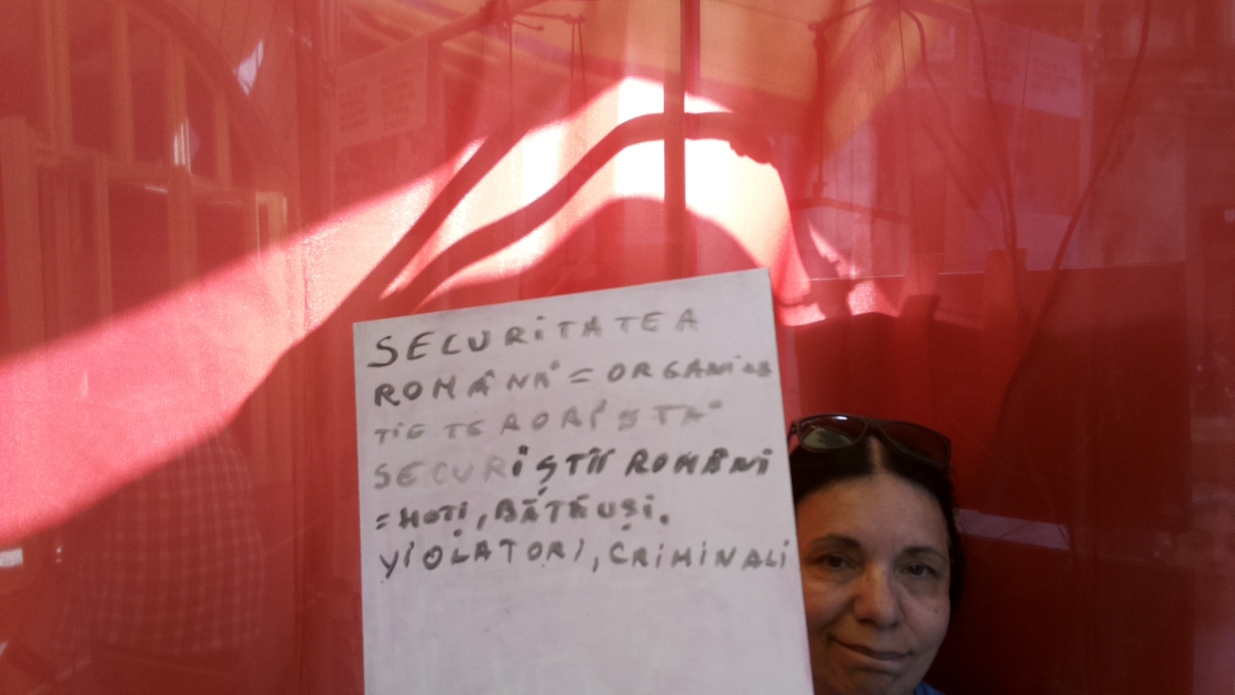 SECURITATEA
ROMÂNĂ = ORGANIZA
ȚIE TERORISTĂ
SECURIȘTII ROMÂNI
= HOȚI, BĂTĂUȘI,
VIOLATORI, CRIMINALI